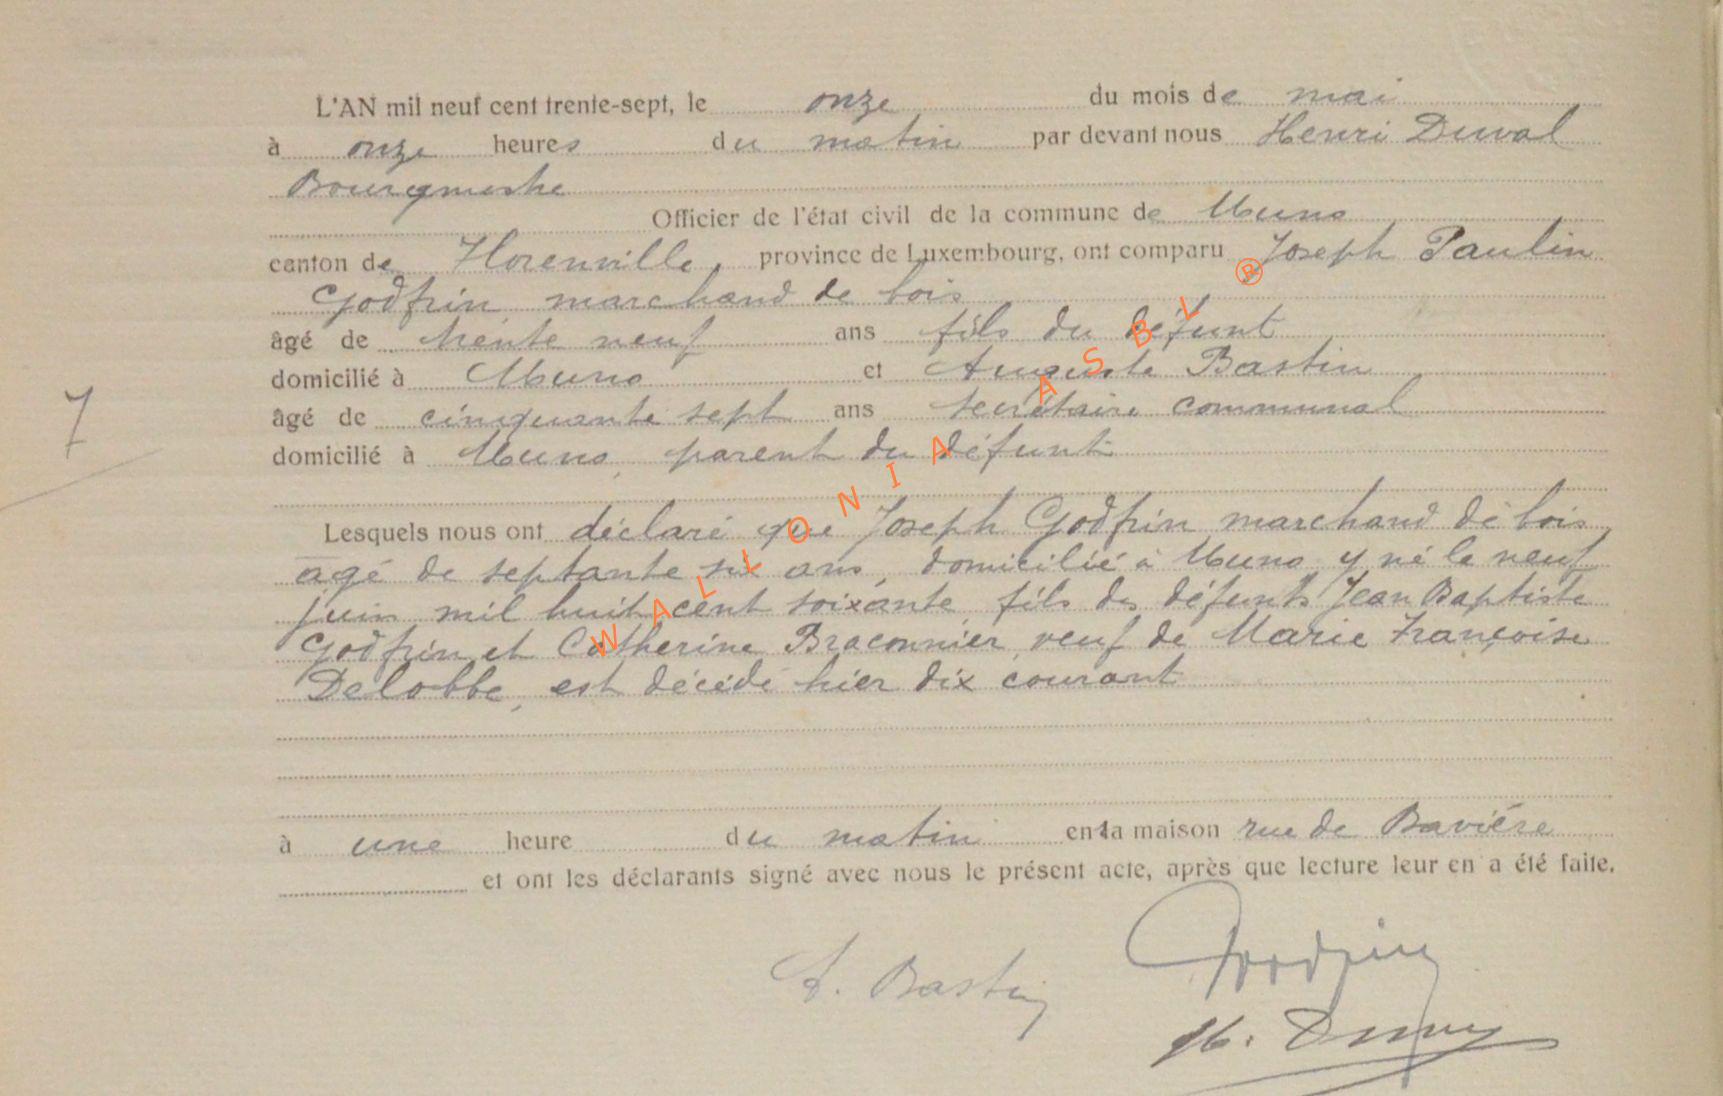 L'AN mil neuf cent trente-sept, le onze du mois de mai
à onze heures du matin par devant nous Henri Duval
Bourgmestre
Officier de l'état civil de la commune de Muno
canton de Florenville, province de Luxembourg, ont comparu Joseph Paulin
Godfrin marchand de bois
âgé de trente neuf ans fils du défunt
domicilié à Muno et Auguste Bastin
âgé de cinquante sept ans secrétaire communal
domicilié à Muno, parent du défunt
Lesquels nous ont déclaré que Joseph Godfrin marchand de bois,
âgé de septante six ans, domicilié à Muno y né le neuf
juin mil huit cent soixante, fils des défunts Jean Baptiste
Godfrin et Catherine Braconnier, veuf de Marie Françoise
Delobbe, est décédé hier dix courant
à une heure du matin en la maison rue de Bavière
et ont les déclarants signé avec nous le présent acte, après que lecture leur en a été faite.
A. Bastin Godfrin
H. Duval
7
WALLONIA ASBL ®